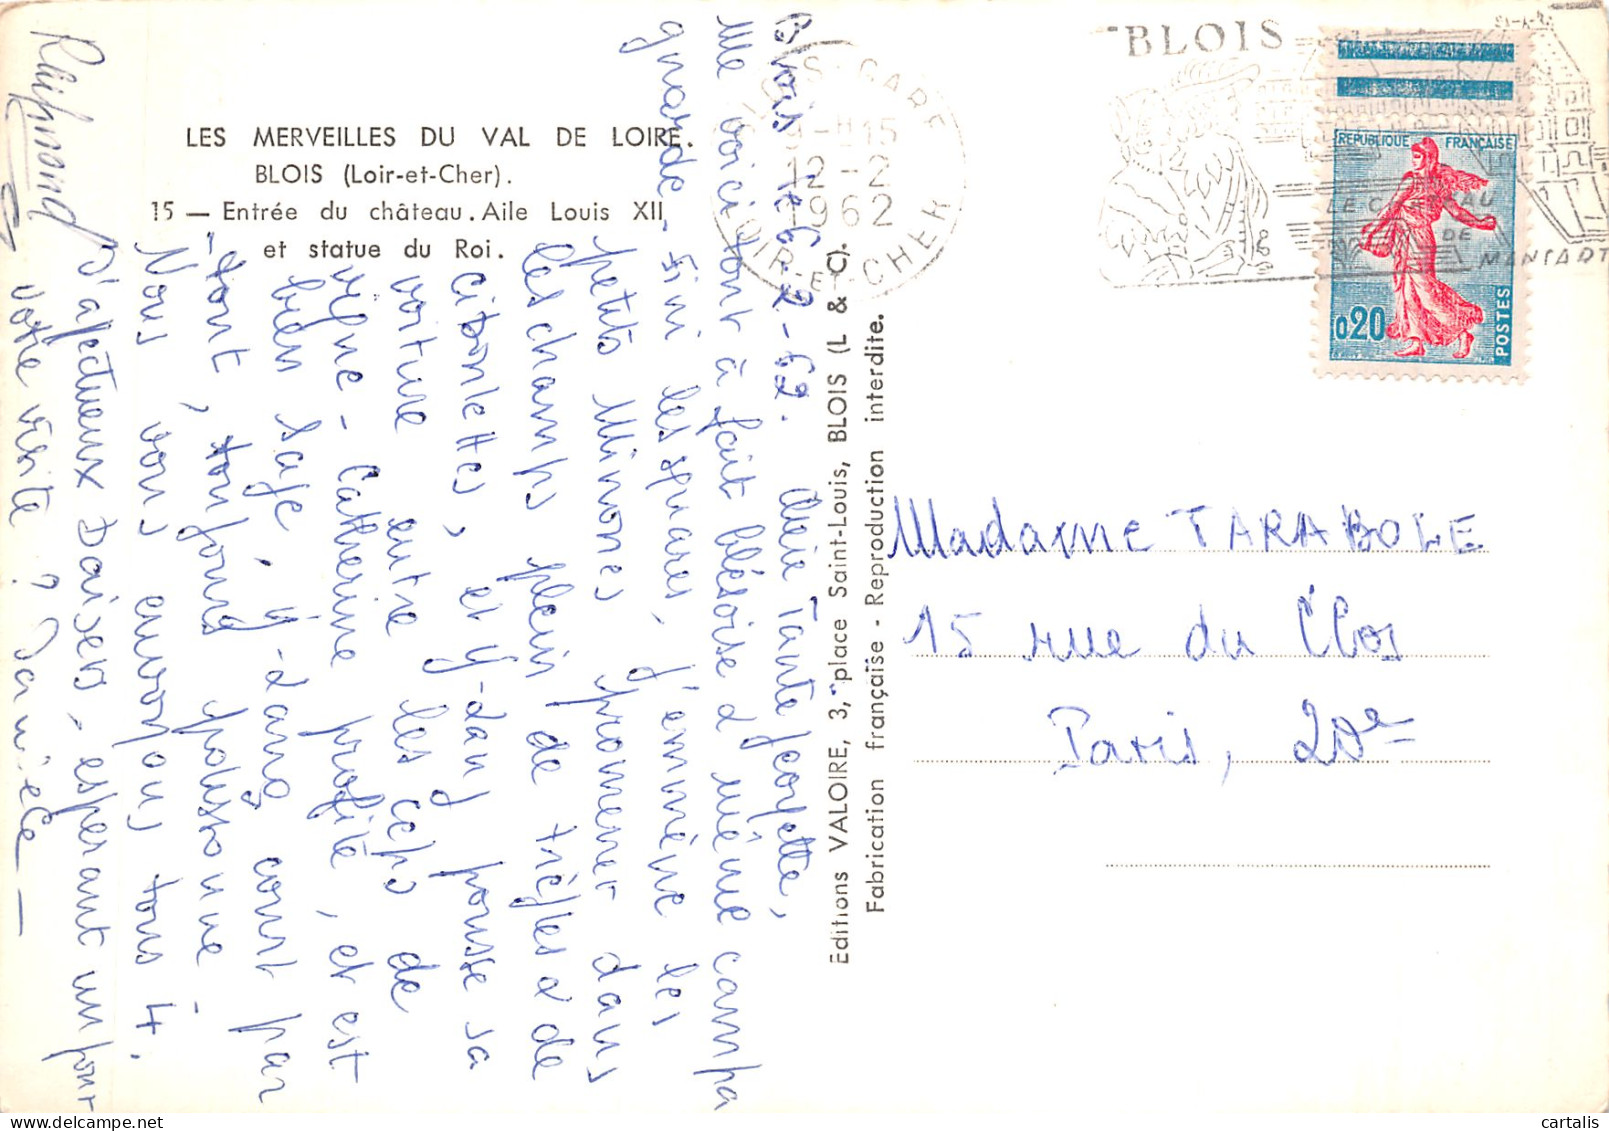 LES MERVEILLES DU VAL DE LOIRE.
BLOIS (Loir-et-Cher).
15 — Entrée du château. Aile Louis XII
et statue du Roi.
Blois le 6-2-62. Chère Tante Georgette,
Me voici tout à fait blésoise & même campa
gnarde - Fini les squares, j'emmène les
petits Minores promener dans
les champs plein de trèfles & de
ciboulettes, et Y-Dany pousse sa
voiture entre les ceps de
vigne - Catherine profite, et est
bien sage, Y-Dany court par
-tout, toujours polissonne -
Nous vous envoyons tous 4.
D'affectueux baisers, espérant un jour
votre visite ? Danièle -
Raymond
Editions VALOIRE, 3, place Saint-Louis, BLOIS (L & C).
Fabrication française - Reproduction interdite.
BLOIS-GARE
-H15
12-2
1962
LOIR-ET-CHER
BLOIS
LE CHATEAU
DE
MANSART
REPUBLIQUE FRANÇAISE
0,20
POSTES
Madame TARABOLE
15 rue du Clos
Paris, 20e
cartalis